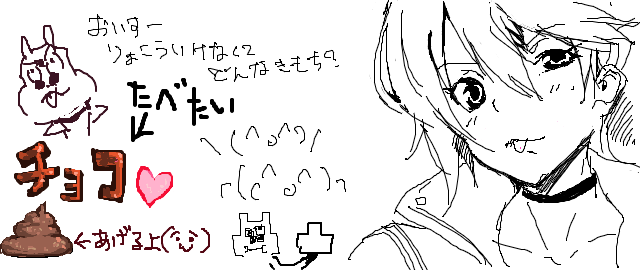 おいすー
りょこういけなくて
どんなきもち？
たべたい
チョコ
＼(^o^)／
┌(^o^)┐
←あげるよ(^o^)